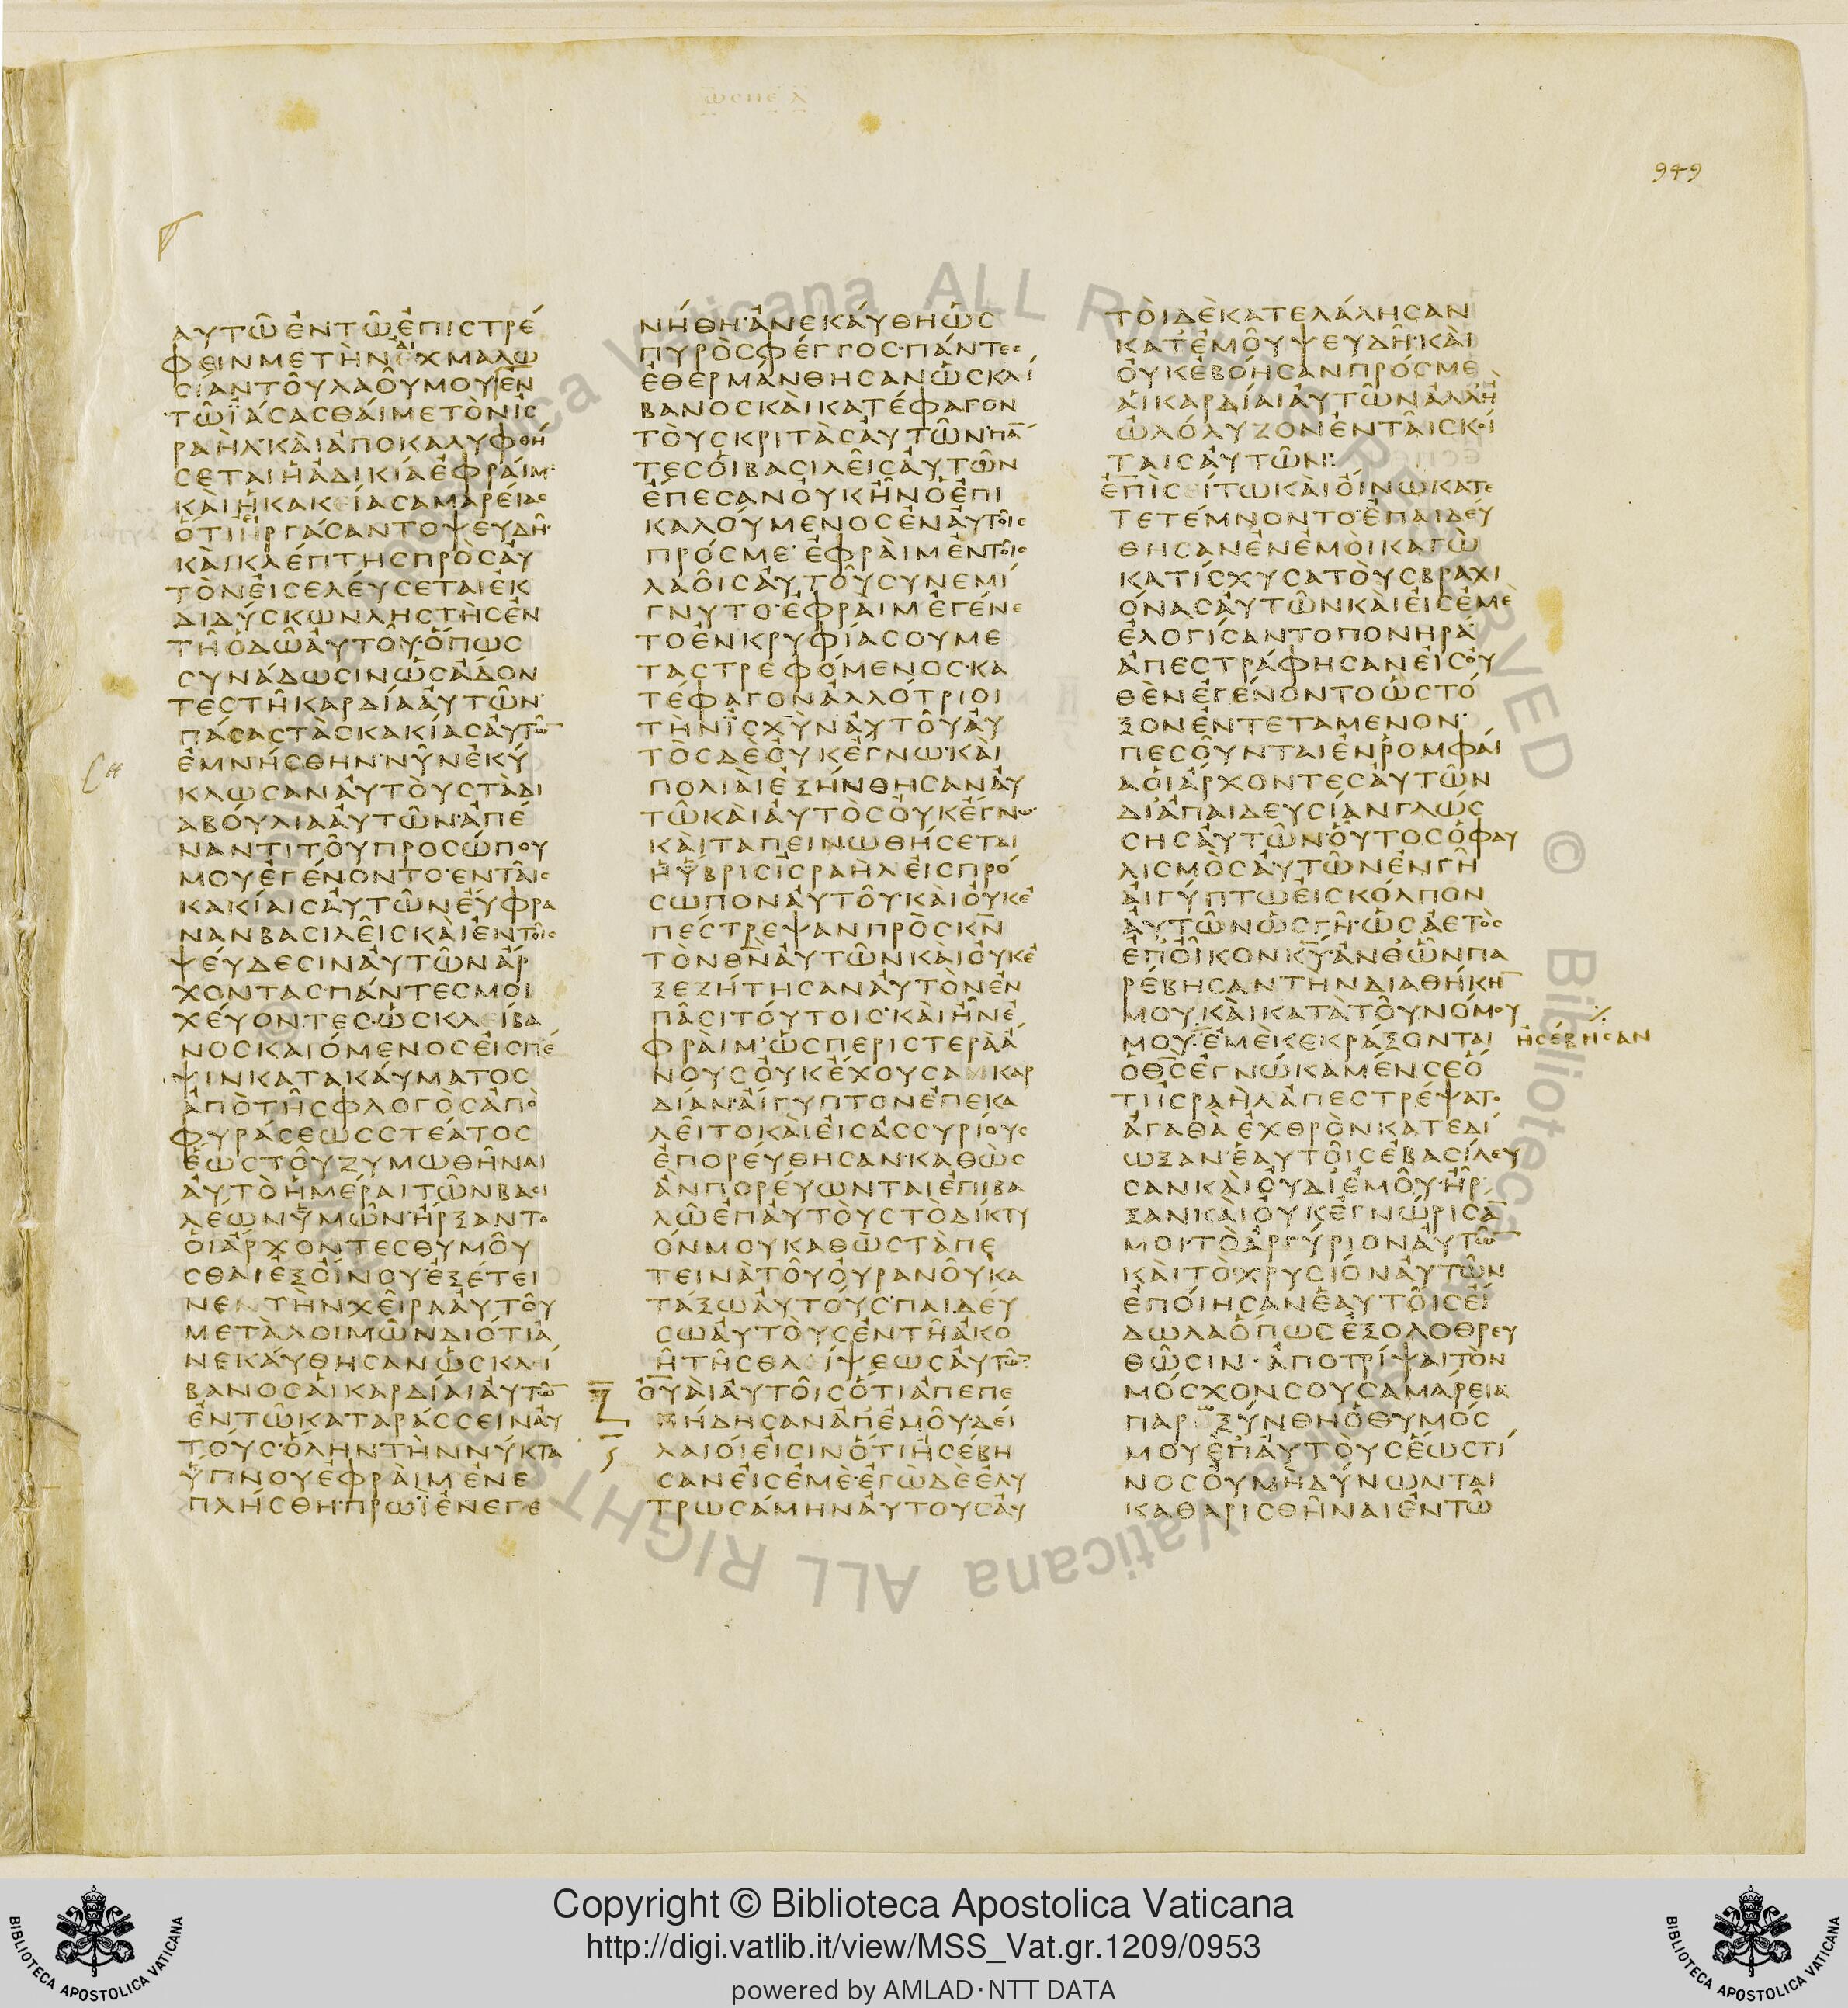 ωσηε λ
949
αὐτῶ ἐν τῶ ἐπιστρέ
φειν με τὴν αἰχμαλω
σίαν τοῦ λαοῦ μου ἐν
τῶ ϊάσασθαί με τὸν ἰσ
ραὴλ· καὶ ἀποκαλυφθή
σεται ἡ ἀδικία ἐφράιμ·
καὶ ἡ κακεία σαμαρείας
ὅτι ἠργάσαντο ψευδῆ·
καὶ κλέπτης πρὸς αὐ
τὸν εἰσελεύσεται ἐκ
διδύσκων ληστὴς ἐν
τῆ ὁδῶ αὐτοῦ· ὅπως
συνάδωσιν ὡς ἄδον
τες τῆ καρδία αὐτῶν·
πάσας τὰς κακίας αὐτῶ̅
ἐμνήσθην· νῦν ἐκύ
κλωσαν αὐτοὺς τὰ δι
αβούλια αὐτῶν· ἀπέ
ναντι τοῦ προσώπου
μου ἐγένοντο· ἐν ταῖς
κακίαις αὐτῶν εὔφρα
ναν βασιλεῖς καὶ ἐν τοῖς
ψεύδεσιν αὐτῶν ἄρ
χοντας· πάντες μοι
χεύοντες· ὡς κλείβα
νος καιόμενος εἰς πέ
ψιν κατακαύματος
ἀπὸ τῆς φλογὸς ἀπὸ
φυράσεως στέατος
ἕως τοῦ ζυμωθῆναι
αὐτὸ ἡμέραι τῶν βασι
λέων ὑμῶν· ἤρξαντο
οἱ ἄρχοντες θυμοῦ
σθαι ἐξ οἴνου ἐξέτει
νεν τὴν χεῖρα αὐτοῦ
μετὰ λοιμῶν διότι ἀ
νεκαύθησαν ὡς κλεί
βανος αἱ καρδίαι αὐτῶ̅
ἐν τῶ καταράσσειν αὐ
τούς· ὅλην τὴν νύκτα
ὕπνου ἐφράιμ ἐνε
πλήσθη· πρωῒ ἐνεγε
νήθη· ἀνεκαύθη ὡς
πυρὸς φέγγος· πάντες
ἐθερμάνθησαν ὡς κλί
βανος καὶ κατέφαγον
τοὺς κριτὰς αὐτῶν· πά̅
τες οἱ βασιλεῖς αὐτῶν
ἔπεσαν οὐκ ἦν ὁ ἐπι
καλούμενος ἐν αὐτοῖς
πρός με· ἐφράιμ ἐν τοῖς
λαοῖς αὐτοῦ συνεμί
γνυτο· ἐφράιμ ἐγένε
το ἐνκρυφίας ου με
ταστρεφόμενος· κα
τέφαγον ἀλλότριοι
τὴν ϊσχὺν αὐτοῦ αὐ
τὸς δὲ οὐκ ἔγνω· καὶ
πολιαὶ ἐξήνθησαν αὐ
τῶ καὶ αὐτὸς οὐκ ἔγνω·
καὶ ταπεινωθήσεται
ἡ ὕβρις ἰσραὴλ εἰς πρό
σωπον αὐτοῦ· καὶ οὐκ ἐ
πέστρεψαν πρὸς κ̅ν̅
τὸν θ̅ν̅ αὐτῶν καὶ οὐκ ἐ
ξεζήτησαν αὐτὸν ἐν
πᾶσι τούτοις· καὶ ἦν ἐ
φράιμ· ὡς περιστερὰ ἄ
νους οὐκ ἔχουσα καρ
δίαν· αἴγυπτον ἐπεκα
λεῖτο καὶ εἰς ἀσσυρίους
ἐπορεύθησαν· καθὼς
ἂν πορεύωνται ἐπιβα
λῶ ἐπ αὐτοὺς τὸ δίκτυ
ον μου καθὼς τὰ πε
τεινὰ τοῦ οὐρανοῦ κα
τάξω αὐτούς· παιδεύ
σω αὐτοὺς ἐν τῆ ἀκο
ῆ τῆς θλείψεως αὐτῶ̅·
οὐαὶ αὐτοῖς ὅτι ἀπεπε
ήδησαν ἀπ ἐμοῦ· δεί
λαιοί εἰσιν ὅτι ἠσέβη
σαν εἰς ἐμὲ· ἐγὼ δὲ ἐλυ
τρωσάμην αὐτοὺς αὐ
τοὶ δὲ κατελάλησαν
κατ ἐμοῦ ψευδῆ· καὶ
οὐκ ἐβόησαν πρός με
αἱ καρδίαι αὐτῶν ἀλλ ἢ
ὠλόλυζον ἐν ταῖς κοί
ταις αὐτῶν:
ἐπὶ σείτω καὶ οἴνω κατε
τετέμνοντο· ἐπαιδεύ
θησαν ἐν ἐμοὶ καγὼ
κατίσχυσα τοὺς βραχί
ονας αὐτῶν καὶ εἰς ἐμὲ
ἐλογίσαντο πονηρά
ἀπεστράφησαν εἰς οὐ
θὲν ἐγένοντο ὡς τό
ξον ἐντεταμενον·
πεσοῦνται ἐν ῥομφαί
α οἱ ἄρχοντες αὐτῶν
δι ἀπαιδευσίαν γλώσ
σης αὐτῶν· οὗτος ὁ φαυ
λισμὸς αὐτῶν ἐν γῆ
αἰγύπτω εἰς κόλπον
αὐτῶν ὡς γῆ· ὡς ἀετὸς
ἐπ οἶκον κ̅υ̅· ἀνθ ὧν πα
ρέβησαν τὴν διαθήκη̅
μου καὶ κατὰ τοῦ νόμου
μου· ἐμὲ κεκράξονται ἠσέβησαν
ὁ θ̅ς̅ ἐγνώκαμέν σε ὅ
τι ἰσραὴλ ἀπεστρέψατο
ἀγαθὰ ἐχθρὸν κατεδί
ωξαν· ἑαυτοῖς ἐβασίλευ
σαν καὶ οὐ δι ἐμοῦ· ἦρ
ξαν καὶ οὐκ ἐγνώρισά̅
μοι· τὸ ἀργύριον αὐτῶ̅
καὶ τὸ χρυσίον αὐτῶν
ἐποίησαν ἑαυτοῖς εἴ
δωλα ὅπως ἐξολοθρευ
θῶσιν· ἀποτρίψαι τὸν
μόσχον σου σαμάρεια
παρωξύνθη ὁ θυμός
μου ἐπ αὐτοὺς ἕως τί
νος οὐ μὴ δύνωνται
καθαρισθῆναι ἐν τῶ
Copyright © Biblioteca Apostolica Vaticana
http://digi.vatlib.it/view/MSS_Vat.gr.1209/0953
powered by AMLAD·NTT DATA